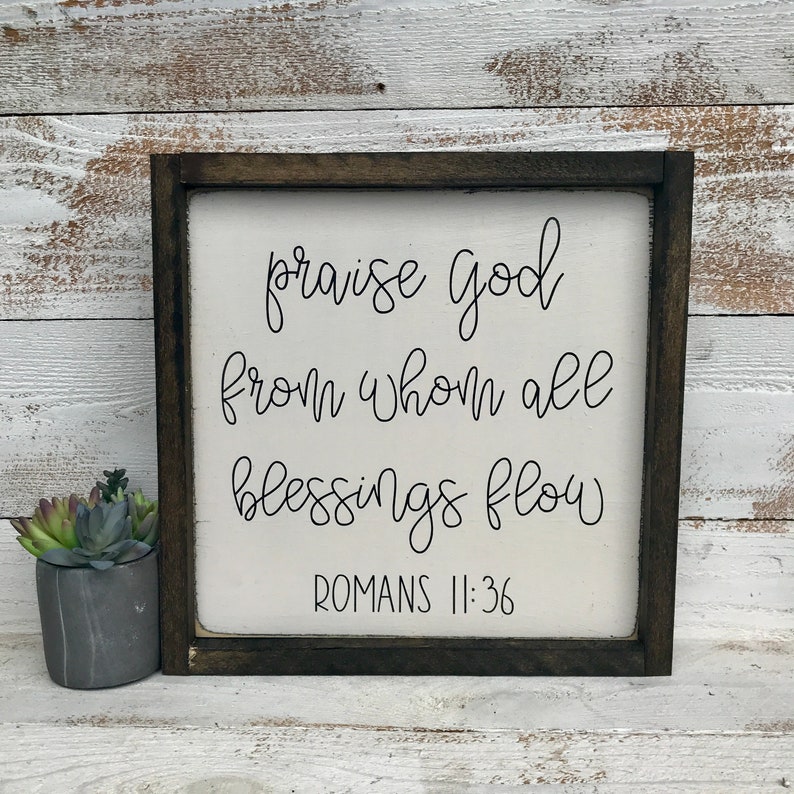 praise God
from whom all
blessings flow
ROMANS 11:36